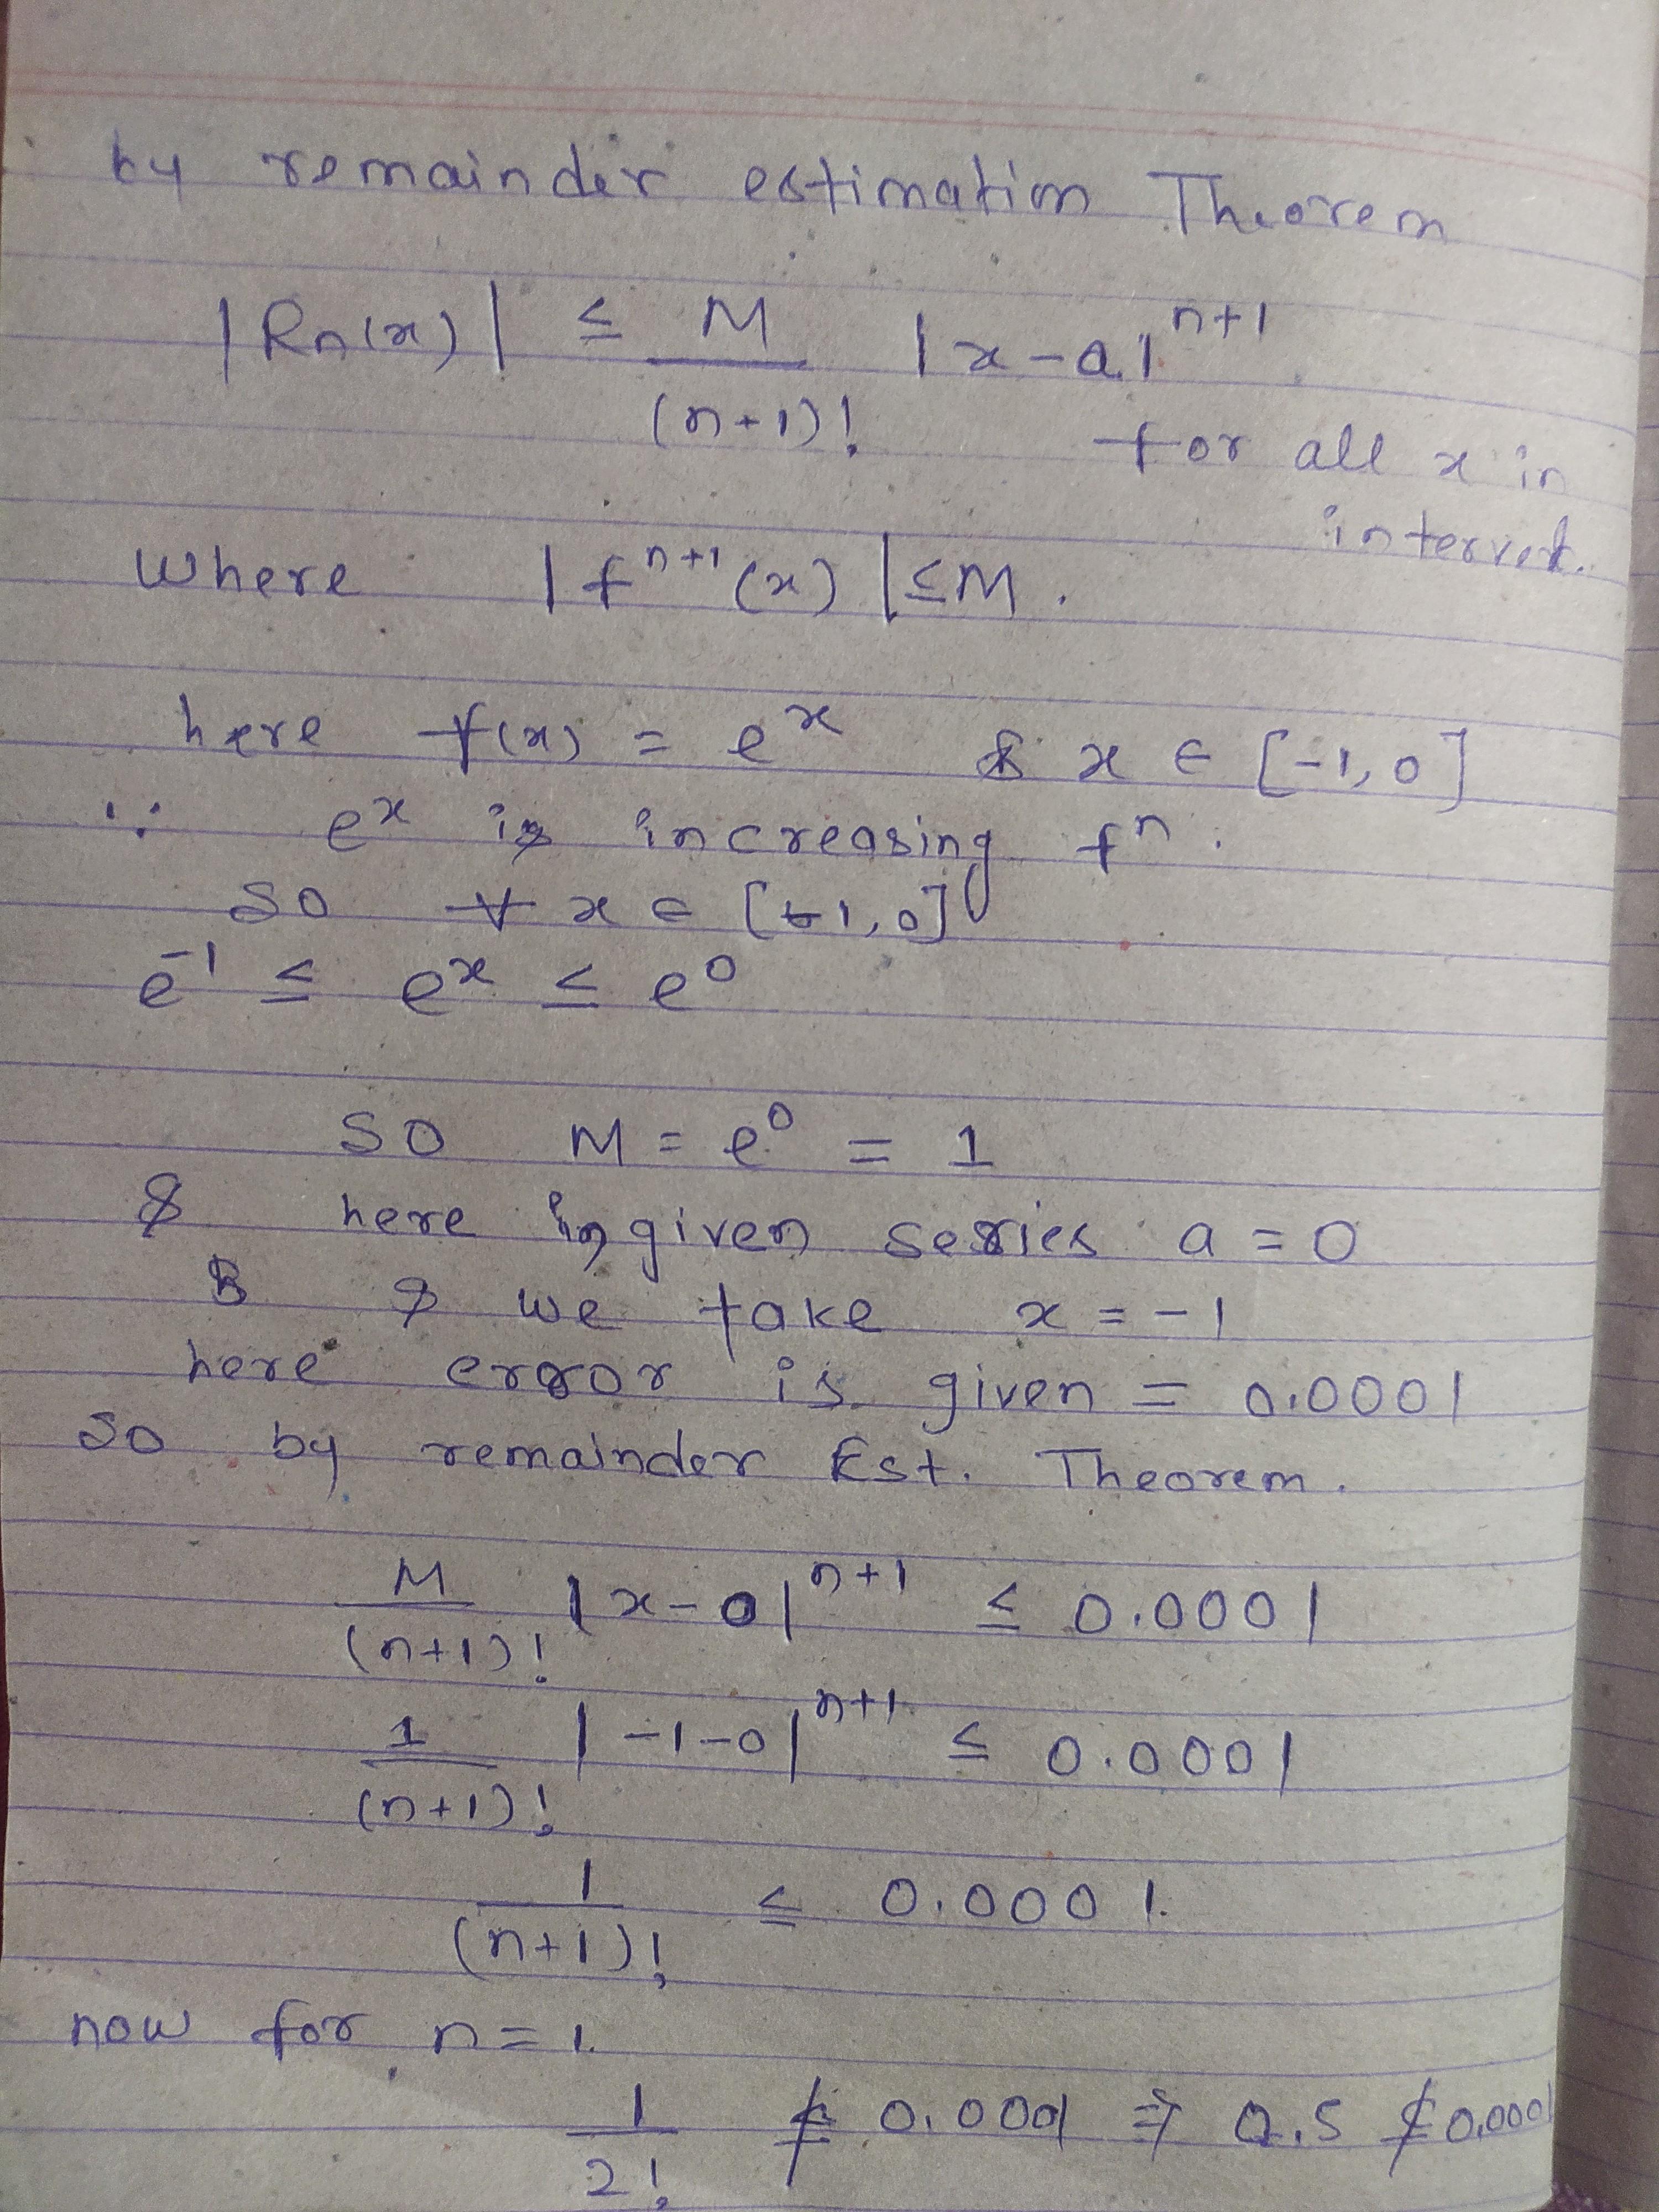 by remainder estimation Theorem
|Rn(x)| ≤ M/(n+1)! |x-a|^n+1
for all x in
interval.
where |f^n+1(x)| ≤ M.
here f(x) = e^x & x ∈ [-1,0]
∵ e^x is increasing f^n.
so ∀ x ∈ [-1,0]
e^-1 ≤ e^x ≤ e^0
so M = e^0 = 1
& here in given series a = 0
& & we take x = -1
here error is given = 0.0001
so by remainder Est. Theorem.
M/(n+1)! |x-0|^n+1 ≤ 0.0001
1/(n+1)! |-1-0|^n+1 ≤ 0.0001
1/(n+1)! ≤ 0.0001.
now for n=1.
1/2! ≰ 0.0001 ⇒ 0.5 ≰ 0.0001